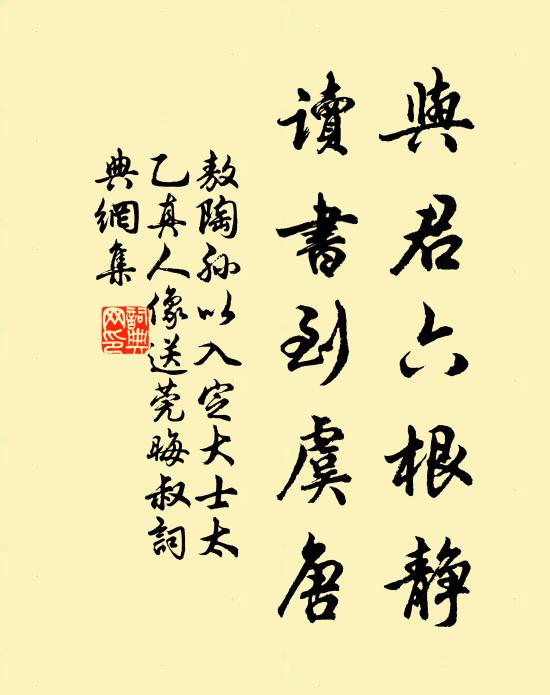 與君六根静
讀書到虞唐
敖陶孙以入定大士太
乙真人像送莞晦叔詞
典網集
詞典
网印